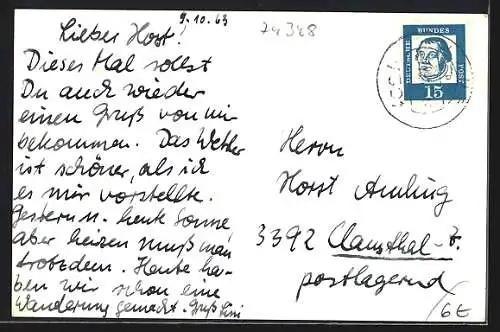 9.10.63
74348
Lieber Horst!
Dieses Mal sollst
Du auch wieder
einen Gruß von mir
bekommen. Das Wetter
ist schöner, als ich
es mir vorstellte.
Gestern u. heut Sonne,
aber heizen muß man
trotzdem. Heute ha-
ben wir schon eine
Wanderung gemacht. Gruß
DEUTSCHE
BUNDES
POST
15
Herrn
Horst Amling
3392 Clausthal-Z.
postlagernd
6E